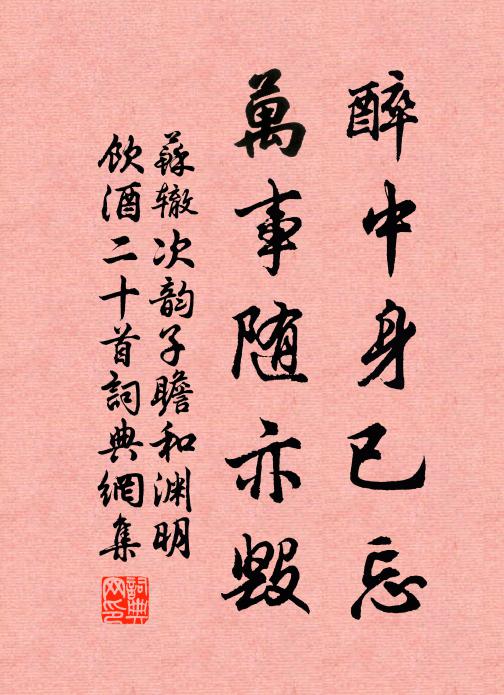 醉中身已忘
萬事随亦毀
蘇辙次韵子瞻和渊明
飲酒二十首詞典網集
詞典網印